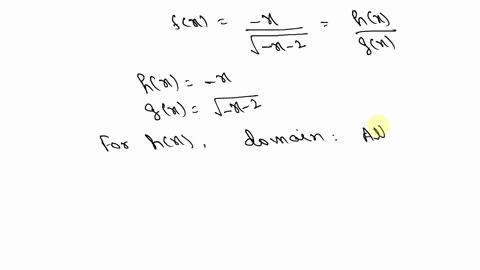 f(x) = -x / √(-x-2) = h(x) / g(x)
h(x) = -x
g(x) = √(-x-2)
For h(x), domain: All